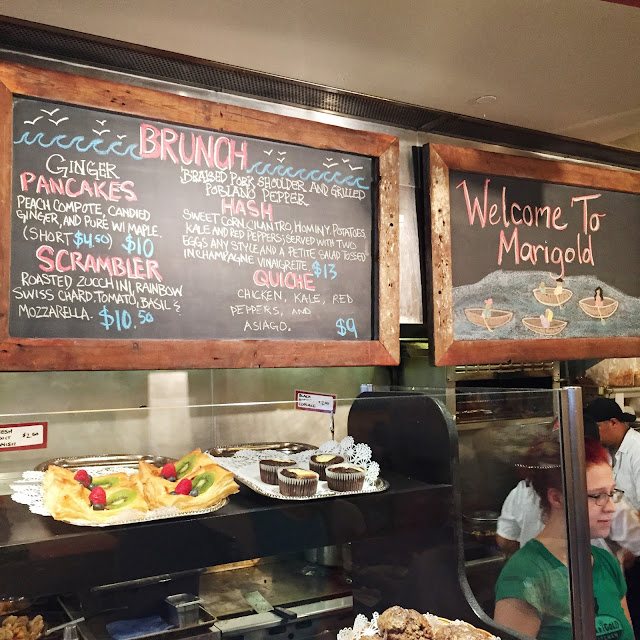 BRUNCH
GINGER
PANCAKES
PEACH COMPOTE, CANDIED
GINGER, AND PURE W/ MAPLE.
(SHORT $4.50) $10
SCRAMBLER
ROASTED ZUCCHINI, RAINBOW
SWISS CHARD, TOMATO, BASIL &
MOZZARELLA. $10.50
BRAISED PORK SHOULDER AND GRILLED
POBLANO PEPPER
HASH
SWEET CORN, CILANTRO, HOMINY, POTATOES,
KALE AND RED PEPPERS; SERVED WITH TWO
EGGS ANY STYLE AND A PETITE SALAD TOSSED
IN CHAMPAGNE VINAIGRETTE. $13
QUICHE
CHICKEN, KALE, RED
PEPPERS, AND
ASIAGO. $9
Welcome To
Marigold
BLACK
$2.50